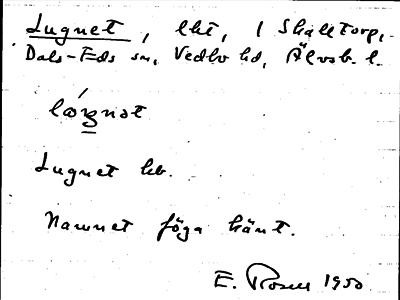 Lugnet, lht, 1 Skalltorp,
Dals-Eds sn, Vedbo hd, Älvsb. l.
Lugnet hb.
Namnet föga känt.
E. Rosell 1950